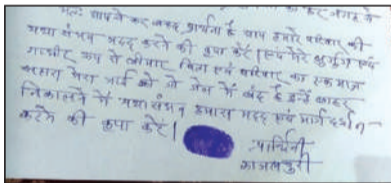 अतः आपसे कर बद्ध प्रार्थना है आप हमारे परिवार की
यथा संभव मदद करने की कृपा करें। एवं मेरे बुजुर्ग एवं
गम्भीर रूप से बीमार पिता एवं परिवार का एक मात्र
सहारा मेरा भाई को जो जेल में बंद है इन्हें बाहर
निकालने में यथा संभव हमारा मदद एवं मार्ग दर्शन
करने की कृपा करें।
प्रार्थिनी
काजलपुरी